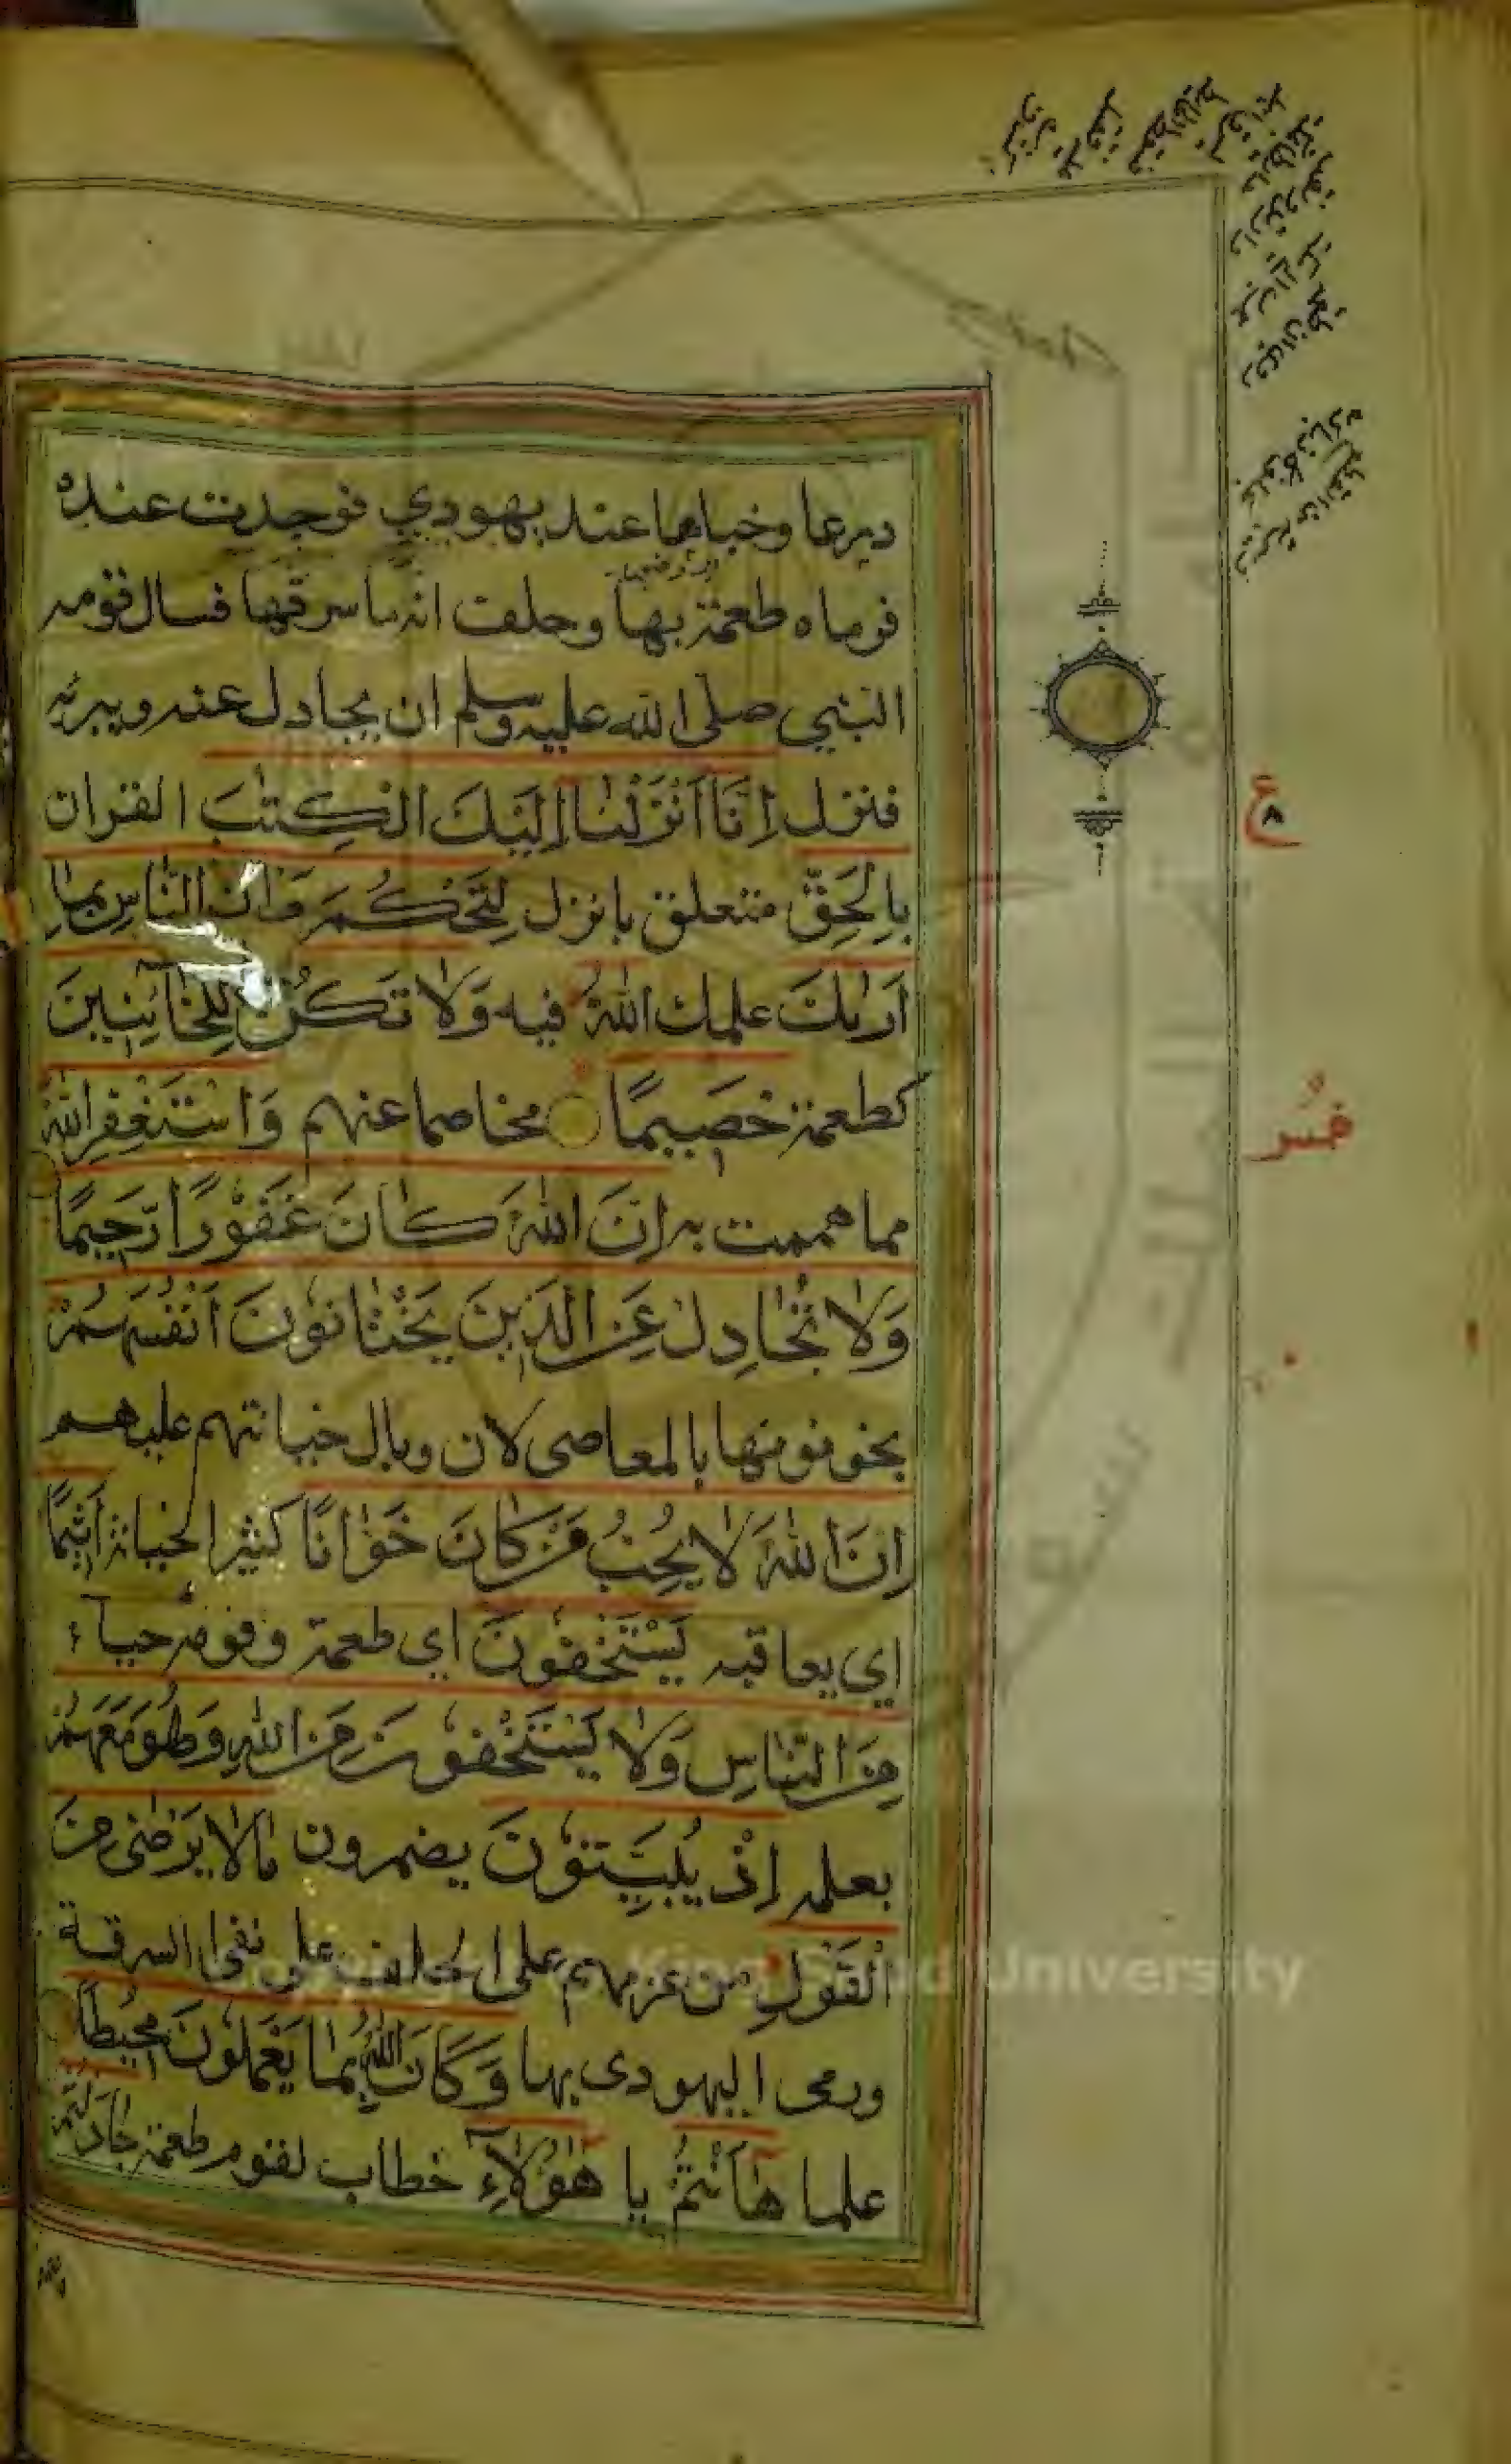 درعا وخباها عند يهودي فوجدت عنده
فرماه طعمة بها وحلف انه ما سرقها فسال قومه
النبي صلى الله عليه وسلم ان يجادل عنه ويبرئه
فنزل اِنَّا اَنْزَلْنَا اِلَيْكَ الْكِتٰبَ القران
بِالْحَقِّ متعلق بانزل لِتَحْكُمَ بَيْنَ النَّاسِ بِمَا
اَرٰىكَ علمك اللّٰهُ فيه وَلَا تَكُنْ لِلْخَآئِنِينَ
كطعمة خَصِيمًا مخاصما عنهم وَاسْتَغْفِرِ اللّٰهَ
مما هممت به اِنَّ اللّٰهَ كَانَ غَفُوْرًا رَّحِيمًا
وَلَا تُجَادِلْ عَنِ الَّذِينَ يَخْتَانُونَ اَنْفُسَهُمْ
يخونونها بالمعاصى لان وبال خيانتهم عليهم
اِنَّ اللّٰهَ لَا يُحِبُّ مَنْ كَانَ خَوَّانًا كثير الخيانة اَثِيمًا
اي يعاقبه يَسْتَخْفُونَ اي طعمة وقومه حياء
مِنَ النَّاسِ وَلَا يَسْتَخْفُونَ مِنَ اللّٰهِ وَهُوَ مَعَهُمْ
بعلمه اِذْ يُبَيِّتُونَ يضمرون مَا لَا يَرْضٰى مِنَ
الْقَوْلِ من عزمهم على الحلف على نفى السرقة
ورمى اليهودى بها وَكَانَ اللّٰهُ بِمَا يَعْمَلُونَ مُحِيْطًا
علما هٰاَنْتُمْ يا هٰؤُلَآءِ خطاب لقوم طعمة جَادَلْتُمْ
ع
٨
University